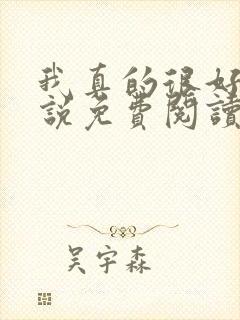 我真的很好
説免費閱讀
吳宇森